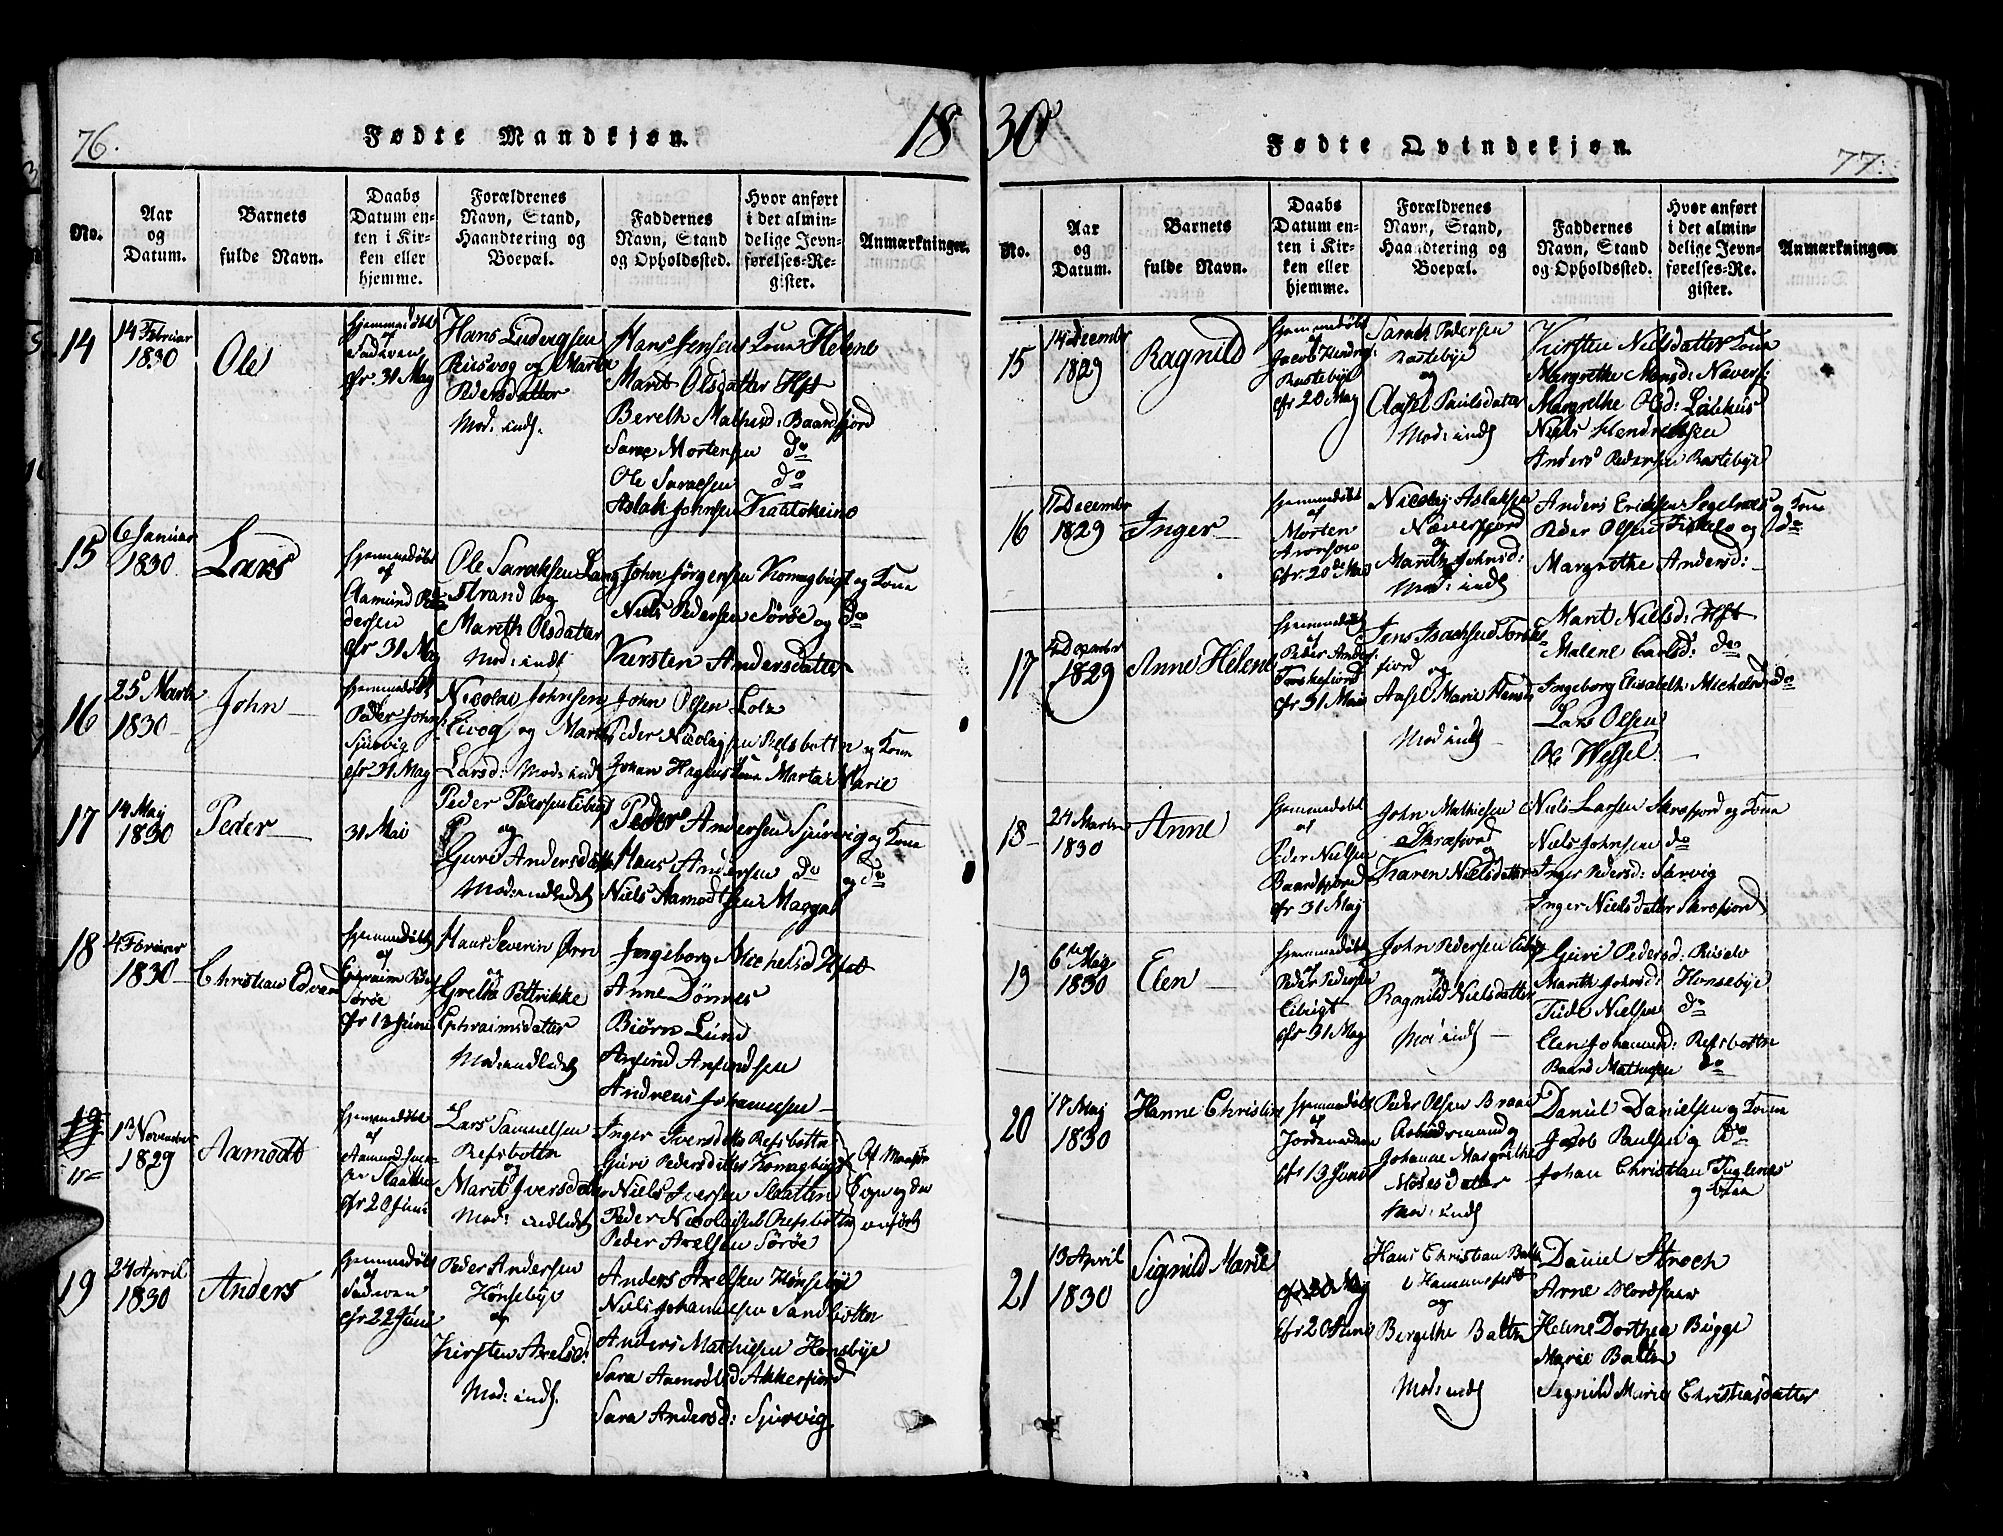 76.
Fødte Mandkjøn.
18
No.
Aar
og
Datum.
Barnets
fulde Navn.
Daabs
Datum en-
ten i Kir-
ken eller
hjemme.
Forældrenes
Navn, Stand,
Haandtering og
Boepæl.
Faddernes
Navn, Stand
og Opholdssted.
Hvor anført
i det almin-
delige Jevn-
førelses-Re-
gister.
Anmærkninger.
14
14 Februar
1830
Ole
hjemmedøbt
af
fr 31 May
Hans Ludvigsen
og Marta
Pedersdatter
Mod: indl.
Hans Jensen Kone Helene
Marit Olsdatter Hft
Bereth Mathisd: Baardfjord
Sara Mortensen do
Ole Saraksen do
Aslak Johnsen Kautokeino
15
6 Januar
1830
Lars
hjemmedøbt
af
Aamund Pe-
dersen
fr 31 May
Ole Saraksen Lang
strand og
Mareth Olsdatter
Mod: indl
John Jørgensen Komagbugt og Kone
Niels Pedersen Sørøe og do
Kirsten Andersdatter
16
25 Marts
1830
John
hjemmedøbt
Peder Johns:
Sjurvig
fr 31 May
Nicolai Johnsen
og Marta
Larsd: Mod: indl
John Olsen
Peder Nicolaysen Refsbotten og Kone
Johan Hagens Kone Marta Marie
17
14 May
1830
Peder
31 Mai
Peder Pedersen Eibugt
og
Guri Andersdatter
Mod: indledet
Peder Andersen Sjurvig og Kone
Hans Andersen do og do
Niels Aamodtsen
18
4 Februar
1830
Christian Edvard
hjemmedøbt
af
Ephraim Peder
Sørøe
fr 13 Juni
Hans Severin
og
Grethe Pettrikke
Ephraimsdatter
Mod: indledet
Ingeborg Michelsd Hfst
Anne Dønnes
Biørn Lund
Anfind Anfindsen
Andreas Johannesen
19
13 November
1829
Aamodt
hjemmedøbt
af
fr 20 Juni
Lars Samuelsen
Refsbotten
og
Marit Iversdatter
Mod: indledet
Inger Iversdtr Refsbotten
Guri Pedersdatter Komagbugt
Niels Iversen Slaatten
Peder Nicolaisen Refsbotten
Peder Axelsen Sørøe
Sogn og der
anført
19
24 April
1830
Anders
hjemmedøbt
af
fr 22 Juni
Peder Andersen
Hønsebye
og
Kirsten Axelsd:
Mod: indl.
Anders Axelsen Hønsebye
Niels Johannesen Sandbotten
Anders Mathisen Honsbye
Sara Aamodtsd Akkerfiord
Sara Andersd: Sjurvig
30
Fødte Qvindekjøn.
77.
No.
Aar
og
Datum.
Barnets
fulde Navn.
Daabs
Datum en-
ten i Kir-
ken eller
hjemme.
Forældrenes
Navn, Stand,
Haandtering og
Boepæl.
Faddernes
Navn, Stand
og Opholdssted.
Hvor anført
i det almin-
delige Jevn-
førelses-Re-
gister.
Anmærkninger.
15
14 December
1829
Ragnild
hjemmedøbt
af
Jacob Hendrik:
Rastebye
fr 20 May
Sarach Pedersen
Rastebye
og
Aasel Paulsdatter
Mod: indl
Kirsten Nielsdatter Kone
Margrethe Monsd: Naverf:
Margrethe Olsd:
Niels Hendrichsen
Anders Pedersen Rastebye
16
17 December
1829
Inger
hjemmedøbt
af
Morten
fr. 20de Mai
Nicolay Aslaksen
Næverfjord
og
Marith Johnsd:
Mod: indl
Anders Erichsen Segelnæs og Kone
Peder Olsen og do
Margrethe Andersd:
17
4 December
1829
Anne Helene
hjemmedøbt
af
Peder Anders:
Torskefiord
fr 31 Mai
Jens Isachsen Torske-
fiord og
Aasel Marie Hansd
Mod indl
Marit Nielsd: Hft
Malene Carlsd: do
Ingeborg Elisabeth: Michelsd do
Lars Olsen
Ole Wessel.
18
24 Marts
1830
Anne
hjemmedøbt
af
Peder Nielsen
Baardfjord
fr 31 May
John Mathisen
Skræfiord
og
Karen Nielsdatter
Niels Larsen Skræfjord og Kone
Niels Johnsen do
Inger Pedersd: Sarvig
Inger Nielsdatter Skræfjord
19
6te May
1830
Elen
hjemmedøbt
af
Peder Pedersen
Eibugt
fr 31 May
John Pedersen Eibugt
og
Ragnild Nielsdatter
Mod indl
Guri Pedersd:
Marith Johnsd: Honsebye
Nielsen do
Elen Johannesd: Refsbotten
Baard Mathisen do
20
17 May
1830
Hanne Christine
hjemmedøbt
af
Jordemoderen
fr 13 Juni
Peder Olsen Braae
Arbeidsmand og
Johanne Margrethe
Mosesdatter
indl
Daniel Danielsen og Kone
Jacob Paulsen og do
Johan Christian Fuglenes
og Kone
21
13 April
1830
Signild Marie
fr 20 May
fr 20 Juni
Hans Christian
i Hammerfest
og
Bergithe
Mod: indl
Daniel Stroch
Arne Nordstrøm
Helene Dorthea Bugge
Marie
Signild Marie Christiasdatter